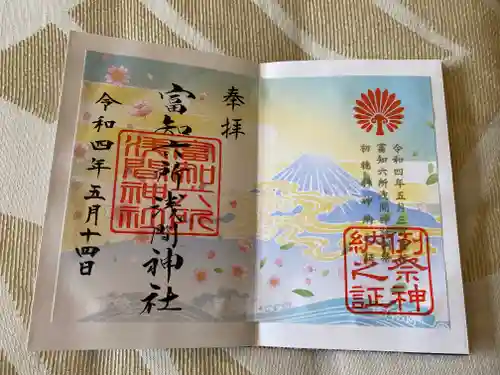 奉拝
富知六所浅間神社
令和四年五月十四日
富知六所
浅間神社
令和四年五月三
富知六所浅間
初穂料
例祭神
納之証